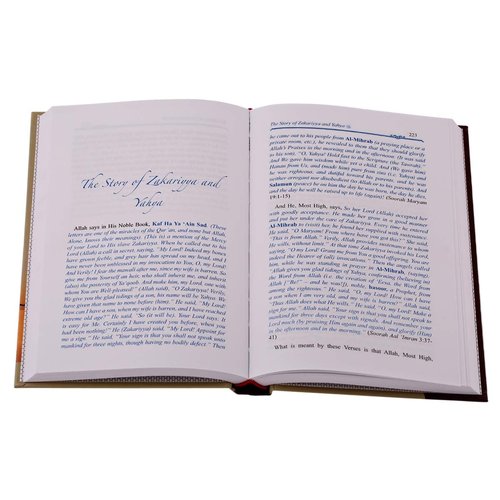 The Story of Zakariyya and
Yahya
Allah says in His Noble Book, Kaf Ha Ya 'Ain Sad. (These
letters are one of the miracles of the Qur'an, and none but Allah,
Alone, knows their meanings). (This is) a mention of the mercy of
your Lord to His slave Zakariyya. When he called out to his
Lord (Allah) a call in secret. saying, "My Lord! Indeed my bones
have grown feeble, and grey hair has spread on my head, and I
have never been unblessed in my invocation to You, O, my Lord!
And Verily! I fear the mawali after me, since my wife is barren. So
give me from Yourself an heir. Who shall inherit me, and inherit
(also) the posterity of Ya'qoob. And make him, my Lord, one with
whom You are Well-pleased" (Allah said), "O Zakariyya! Verily,
We give you the glad tidings of a son, his name will be Yahya. We
have given that name to none before him." He said, "My Lord!
How can I have a son, when my wife is barren, and I have reached
extreme old age?" He said: "So (it will be). Your Lord says: It is
easy for Me. Certainly I have created you before, when you
had been nothing!" He (Zakariyya) said, "My Lord! Appoint for
me a sign." He said: "Your sign is that you shall not speak unto
mankind for three nights, though having no bodily defect." Then
The Story of Zakariyya and Yahya
223
he came out to his people from Al-Mihrab (a praying place or a
private room, etc.), he revealed to them that they should glorify
Allah's Praises in the morning and in the afternoon. (It was said
to his son), "O, Yahya! Hold fast to the Scripture (the Taurah)."
And We gave him wisdom while yet a child. And (We gave him)
Hanan from Us, and (made him) pure from sins (i.e. Yahya) and
he was righteous, and dutiful toward his parents, and he was
neither arrogant nor disobedient (to Allah or to his parents). And
Salamun (peace) be on him the day he was born, the day he dies,
and the day he will be raised up to life (again)! (Soorah Maryam
19:1-15)
And He, Most High, says, So her Lord (Allah) accepted her
with goodly acceptance. He made her grow in a good manner
and put her under the care of Zakariyya. Every time he entered
Al-Mihrab to (visit) her, he found her supplied with sustenance.
He said, "O Maryam! From where have you got this?" She said,
"This is from Allah." Verily, Allah provides sustenance to whom
He wills, without limit." At that time Zakariyya invoked his Lord,
saying, "O my Lord! Grant me from You a good offspring. You are
indeed the Hearer of (all) invocations." Then the angels called
him, while he was standing in prayer in Al-Mihrab, (saying),
"Allah gives you glad tidings of Yahya, confirming (believing in)
the Word from Allah (i.e. the creation of 'Eesa, the Word from
Allah ["Be!" - and he was!]), noble, hasoor, a Prophet, from
among the righteous." He said, "O my Lord! How can I have
a son when I am very old, and my wife is barren?" (Allah) said,
"Thus Allah does what He wills." He said, "O my Lord! Make a
sign for me." Allah said, "Your sign is that you shall not speak to
mankind for three days except with signals. And remember your
Lord much (by praising Him again and again), and glorify (Him)
in the afternoon and in the morning." (Soorah Aal 'Imran 3:37-
41)
What is meant by these Verses is that Allah, Most High,